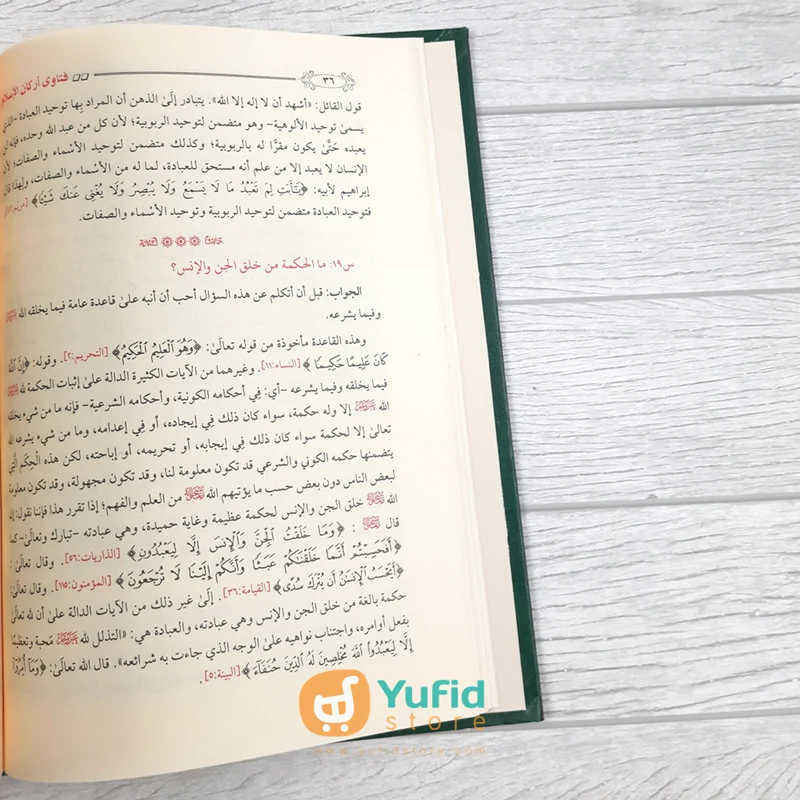 ٣٦
فتاوى أركان الإسلام
قول القائل: «أشهد أن لا إله إلا الله». يتبادر إلَى الذهن أن المراد بِها توحيد العبادة -الذي
يسمىٰ توحيد الألوهية- وهو متضمن لتوحيد الربوبية؛ لأن كل من عبد الله وحده، فإنه لن
يعبده حَتَّىٰ يكون مقرًّا له بالربوبية؛ وكذلك متضمن لتوحيد الأسْماء والصفات؛ لأن
الإنسان لا يعبد إلا من علم أنه مستحق للعبادة، لما له من الأسْماء والصفات، ولِهذا قال
إبراهيم لأبيه: ﴿يَٰٓأَبَتِ لِمَ تَعْبُدُ مَا لَا يَسْمَعُ وَلَا يُبْصِرُ وَلَا يُغْنِى عَنكَ شَيْـًٔا﴾
فتوحيد العبادة متضمن لتوحيد الربوبية وتوحيد الأسْماء والصفات.
س١٩: ما الحكمة من خلق الجن والإنس؟
الجواب: قبل أن أتكلم عن هذه السؤال أحب أن أنبه علىٰ قاعدة عامة فيما يخلقه الله
وفيما يشرعه.
وهذه القاعدة مأخوذة من قوله تعالَىٰ: ﴿وَهُوَ ٱلْعَلِيمُ ٱلْحَكِيمُ﴾ [التحريم:٢]. وقوله: ﴿إِنَّ ٱللَّهَ
كَانَ عَلِيمًا حَكِيمًا﴾ [النساء:١١]. وغيرهما من الآيات الكثيرة الدالة علىٰ إثبات الحكمة لله
فيما يخلقه وفيما يشرعه -أي: فِي أحكامه الكونية، وأحكامه الشرعية- فإنه ما من شيء يخلقه
الله إلا وله حكمة، سواء كان ذلك فِي إيجاده، أو فِي إعدامه، وما من شيء يشرعه الله
تعالَىٰ إلا لحكمة سواء كان ذلك فِي إيجابه، أو تحريمه، أو إباحته، لكن هذه الْحِكَم الَّتِي
يتضمنها حكمه الكوني والشرعي قد تكون معلومة لنا، وقد تكون مجهولة، وقد تكون معلومة
لبعض الناس دون بعض حسب ما يؤتيهم الله من العلم والفهم؛ إذا تقرر هذا فإننا نقول: إن
الله خلق الجن والإنس لحكمة عظيمة وغاية حميدة، وهي عبادته -تبارك وتعالَىٰ- كما
قال : ﴿وَمَا خَلَقْتُ ٱلْجِنَّ وَٱلْإِنسَ إِلَّا لِيَعْبُدُونِ﴾ [الذاريات:٥٦]. وقال تعالَىٰ:
﴿أَفَحَسِبْتُمْ أَنَّمَا خَلَقْنَٰكُمْ عَبَثًا وَأَنَّكُمْ إِلَيْنَا لَا تُرْجَعُونَ﴾ [المؤمنون:١١٥]. وقال تعالَىٰ:
﴿أَيَحْسَبُ ٱلْإِنسَٰنُ أَن يُتْرَكَ سُدًى﴾ [القيامة:٣٦]. إلَىٰ غير ذلك من الآيات الدالة علىٰ أن لله تعالَىٰ
حكمة بالغة من خلق الجن والإنس وهي عبادته، والعبادة هي: «التذلل لله مَحبة وتعظيمًا
بفعل أوامره، واجتناب نواهيه علىٰ الوجه الذي جاءت به شرائعه». قال الله تعالَىٰ: ﴿وَمَآ أُمِرُوٓا۟
إِلَّا لِيَعْبُدُوا۟ ٱللَّهَ مُخْلِصِينَ لَهُ ٱلدِّينَ حُنَفَآءَ﴾ [البينة:٥].
Yufid
store
www.yufidstore.com